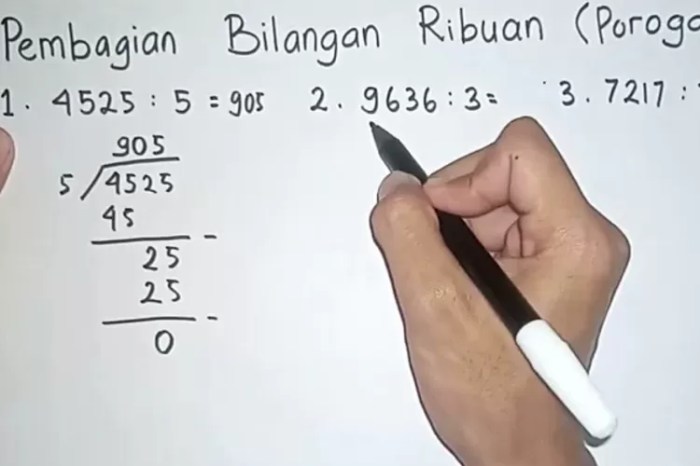 Pembagian Bilangan Ribuan (Poroga
1. 4525 : 5 = 905 2. 9636 : 3 = 3. 7217 :
905
5 / 4525
45
-
25
25
-
0